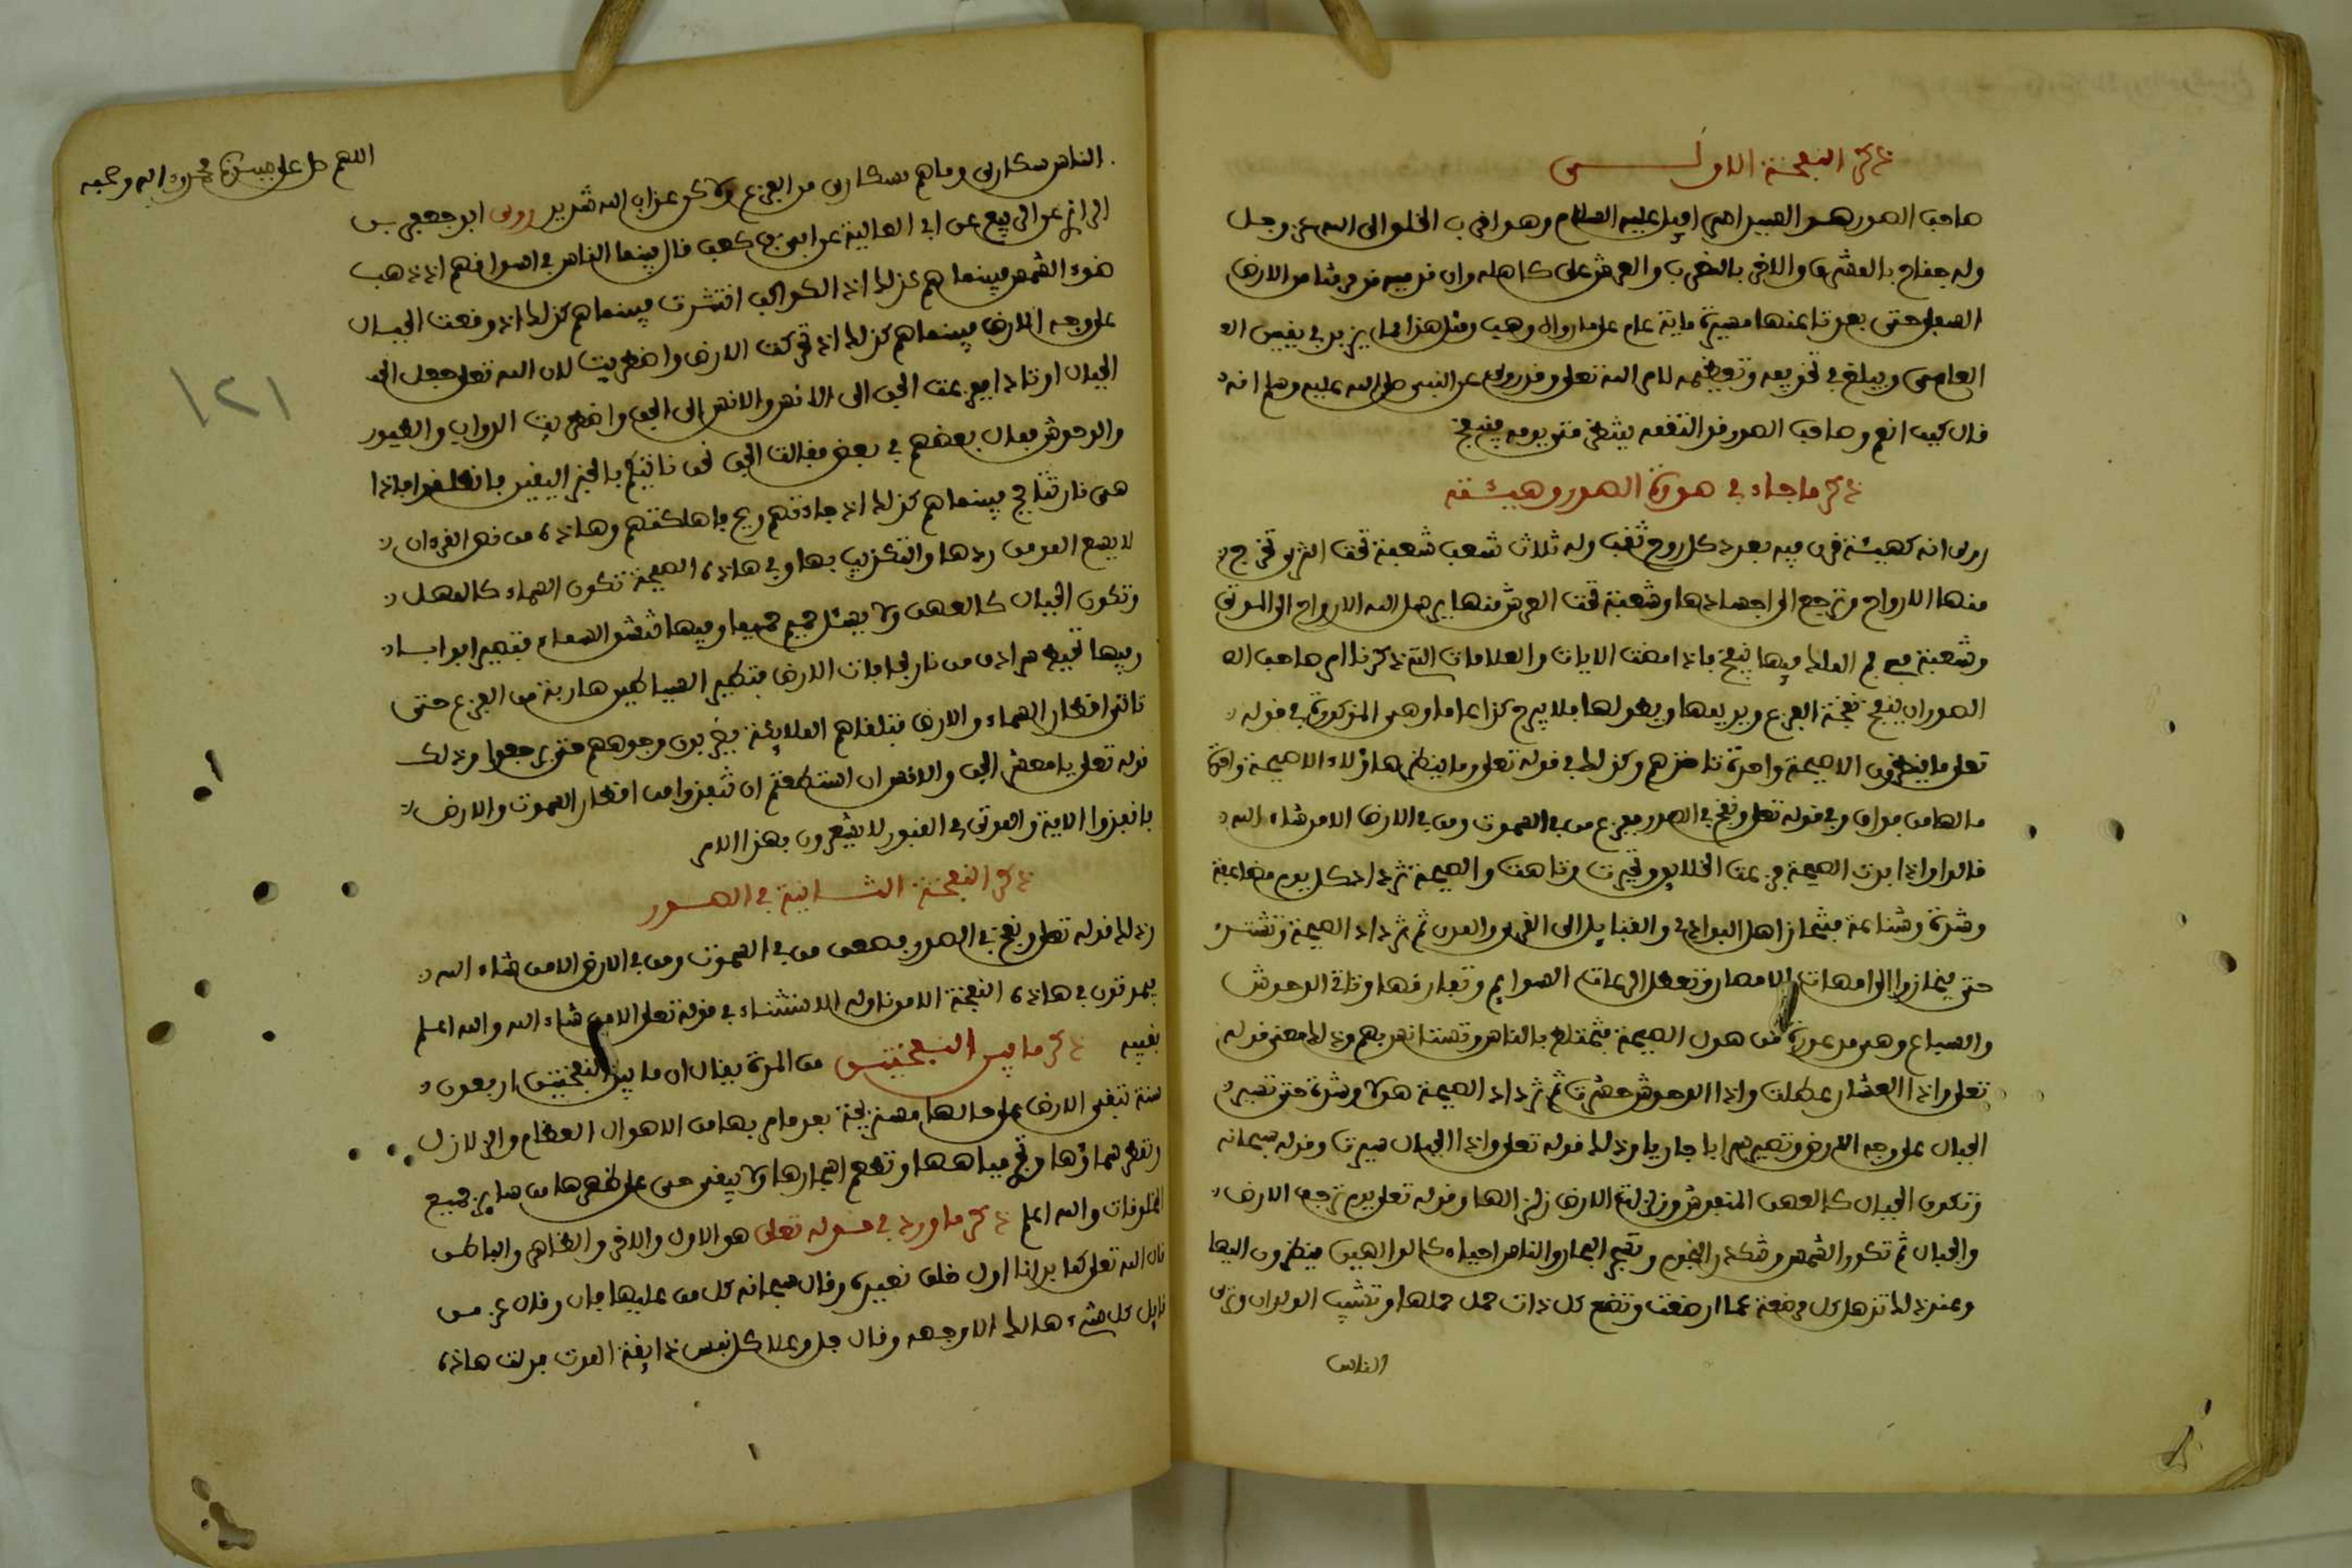 ذكر النفخة الاولى
صاحب الصور هو السيد اسرافيل عليه السلام وهو اقرب الخلق الى الله عز وجل
وله جناح بالمشرق والاخر بالمغرب والعرش على كاهله وان قدميه قد مرقتا من الارض
السفلى حتى بعدتا عنها مسيرة ماية عام على ما رواه وهب ومثل هذا مما يزيد في يقين
العاصى ويبلغ في تخويفه وتعظيمه لامر الله تعلى وقد روى عن النبي صلى الله عليه وسلم انه
قال كيف انعم وصاحب الصور قد التقمه ينتظر متى يومر فينفخ
ذكر ما جاء في صورة الصور وهيئته
روى انه كهيئة قرن فيه بعدد كل روح ثقب وله ثلاث شعب شعبة تحت الثرى تخرج
منها الارواح وترجع الى اجسادها وشعبة تحت العرش منها يرسل الله الارواح الى الموتى
وشعبة في فم الملك فيها ينفخ فاذا مضت الايات والعلامات التي ذكرنا امر صاحب
الصور ان ينفخ نفخة الفزع ويديمها ويطولها فلا يبرح كذا عاما وهي المذكورة في قوله
تعلى ما ينظرون الا صيحة واحدة تاخذهم وكذلك في قوله تعلى وما ينظر هاؤلاء الا صيحة واحدة
ما لها من فواق وفي قوله تعلى ونفخ في الصور ففزع من في السموت ومن في الارض الا من شاء الله
قالوا واذا بدت الصيحة فزعت الخلايق وتحيرت وتاهت والصيحة تزداد كل يوم مضاعفة
وشدة وشناعة فينحاز اهل البوادي والقبايل الى القرى والمدن ثم تزداد الصيحة وتشتد
حتى ينحازوا الى امهات الامصار وتعطل الرعات السوايم وتفارقها وتاتي الوحوش
والسباع وهي مذعورة من هول الصيحة فتختلط بالناس وتستانس بهم وذلك معنى قوله
تعلى واذا العشار عطلت واذا الوحوش حشرت ثم تزداد الصيحة هولا وشدة حتى تسير
الجبال على وجه الارض وتصير سرابا جاريا وذلك قوله تعلى واذا الجبال سيرت وقوله سبحانه
وتكون الجبال كالعهن المنفوش وزلزلة الارض زلزالها وقوله تعلى يوم ترجف الارض
والجبال ثم تكور الشمس وتنكدر النجوم وتسجر البحار والناس احياء كالوالهين ينظرون اليها
وعند ذلك تذهل كل مرضعة عما ارضعت وتضع كل ذات حمل حملها وتشيب الولدان وترى
الناس
اللهم صل على حبيبنا محمد واله وصحبه
الناس سكارى وما هم بسكارى من الفزع ولاكن عذاب الله شديد روى ابو جعفر
الرازي عن الربيع عن ابي العالية عن ابي بن كعب قال بينما الناس في اسواقهم اذ ذهب
ضوء الشمس فبينما هم كذلك اذ الكواكب انتثرت فبينما هم كذلك اذ وقعت الجبال
على وجه الارض فبينما هم كذلك اذ تحركت الارض واضطربت لان الله تعلى جعل
الجبال اوتادا ففزعت الجن الى الانس والانس الى الجن واضطربت الدواب والطيور
والوحوش فماج بعضهم في بعض فقالت الجن نحن ناتيكم بالخبر اليقين فانطلقوا فاذا
هي نار تتاجج فبينما هم كذلك اذ جاءتهم ريح فاهلكتهم وهاذه من نص القرءان
لا يسع المومن ردها والتكذيب بها وفي هاذه الصيحة تكون السماء كالمهل
وتكون الجبال كالعهن ولا يسئل حميم حميما وفيها تنشق السماء فتصير ابوابا
وفيها تحيط سرادق من نار بحافات الارض فتطير الشياطين هاربة من الفزع حتى
تاتي اقطار السماء والارض فتتلقاهم الملائكة يضربون وجوههم حتى يرجعوا وذلك
قوله تعلى يا معشر الجن والانس ان استطعتم ان تنفذوا من اقطار السموت والارض
فانفذوا الاية والموتى في القبور لا يشعرون بهذا الامر
ذكر النفخة الثانية في الصور
وذلك قوله تعلى ونفخ في الصور فصعق من في السموت ومن في الارض الا من شاء الله
فيموتون في هاذه النفخة الا من تناوله الاستثناء في قوله تعلى الا من شاء الله والله اعلم
بغيبه ذكر ما بين النفختين من المدة يقال ان ما بين النفختين اربعون
سنة تبقى الارض على حالها مستريحة بعد ما مر بها من الاهوال العظام والزلازل
وتمطر سماؤها وتجري مياهها وتطعم اشجارها ولا يبقى حي على ظهرها من ساير جميع
المخلوقات والله اعلم ذكر ما ورد في قوله تعلى هو الاول والاخر والظاهر والباطن
قال الله تعلى كما بدانا اول خلق نعيده وقال سبحانه كل من عليها فان وقال عز من
قايل كل شيء هالك الا وجهه وقال جل وعلا كل نفس ذايقة الموت فدلت هاذه
١٢١